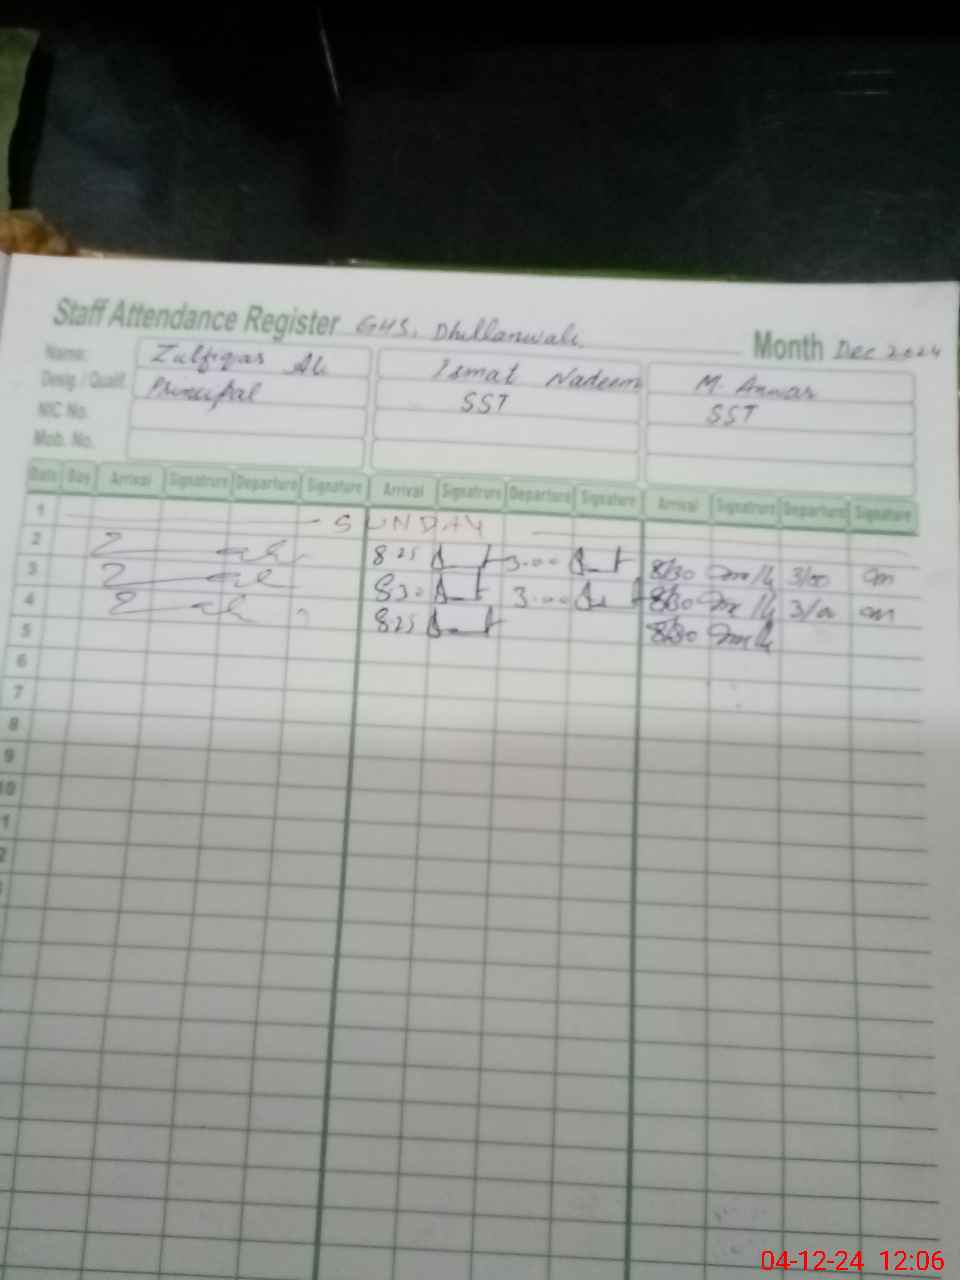 Staff Attendance Register GHS. Dhillanwali. Month Dec 2024
Name: Zulfiqar Ali Ismat Nadeem M. Anwar
Desig. / Qualif. Principal SST SST
NIC No.
Mob. No.
Date Day Arrival Signature Departure Signature Arrival Signature Departure Signature Arrival Signature Departure Signature
1 SUNDAY
2 8 25 3.00 8/30 3/00
3 8 30 3.00 8/30 3/00
4 8 25 8/30
5
6
7
8
9
10
04-12-24 12:06